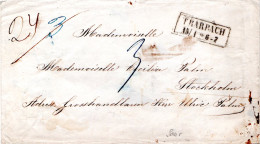 24 / 3
TRARBACH
15/1 * 6-7
Mademoiselle
3
Mademoiselle Palm
Stockholm
Adress Grosshandlaren Herr Palm